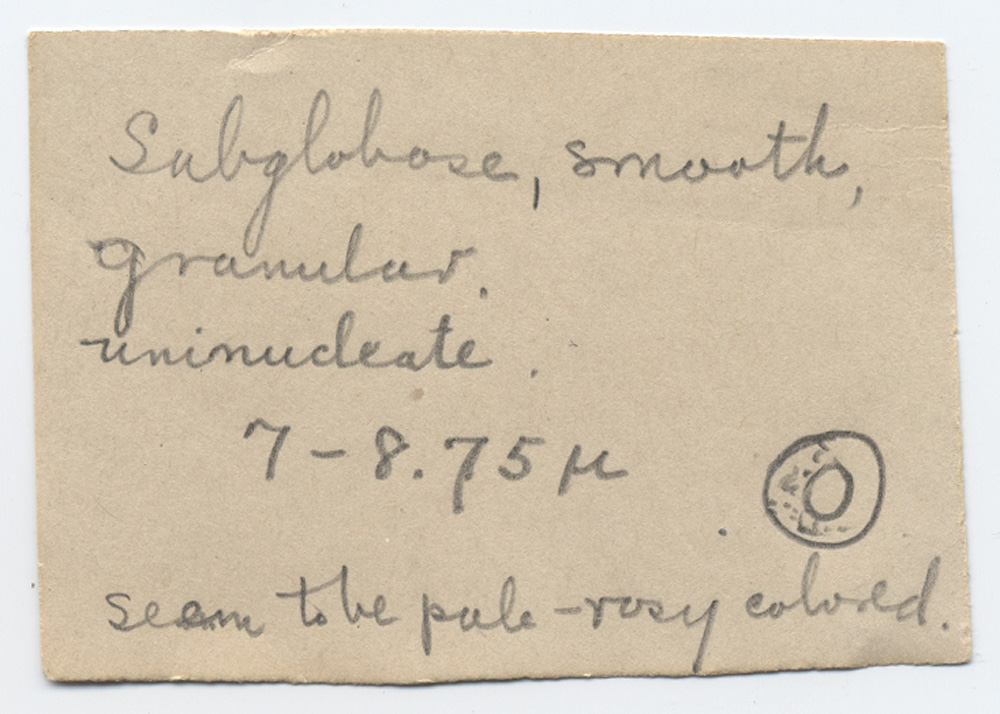 Subglobose, smooth,
granular.
uninucleate.
7-8.75 μ
seem to be pale-rosy colored.